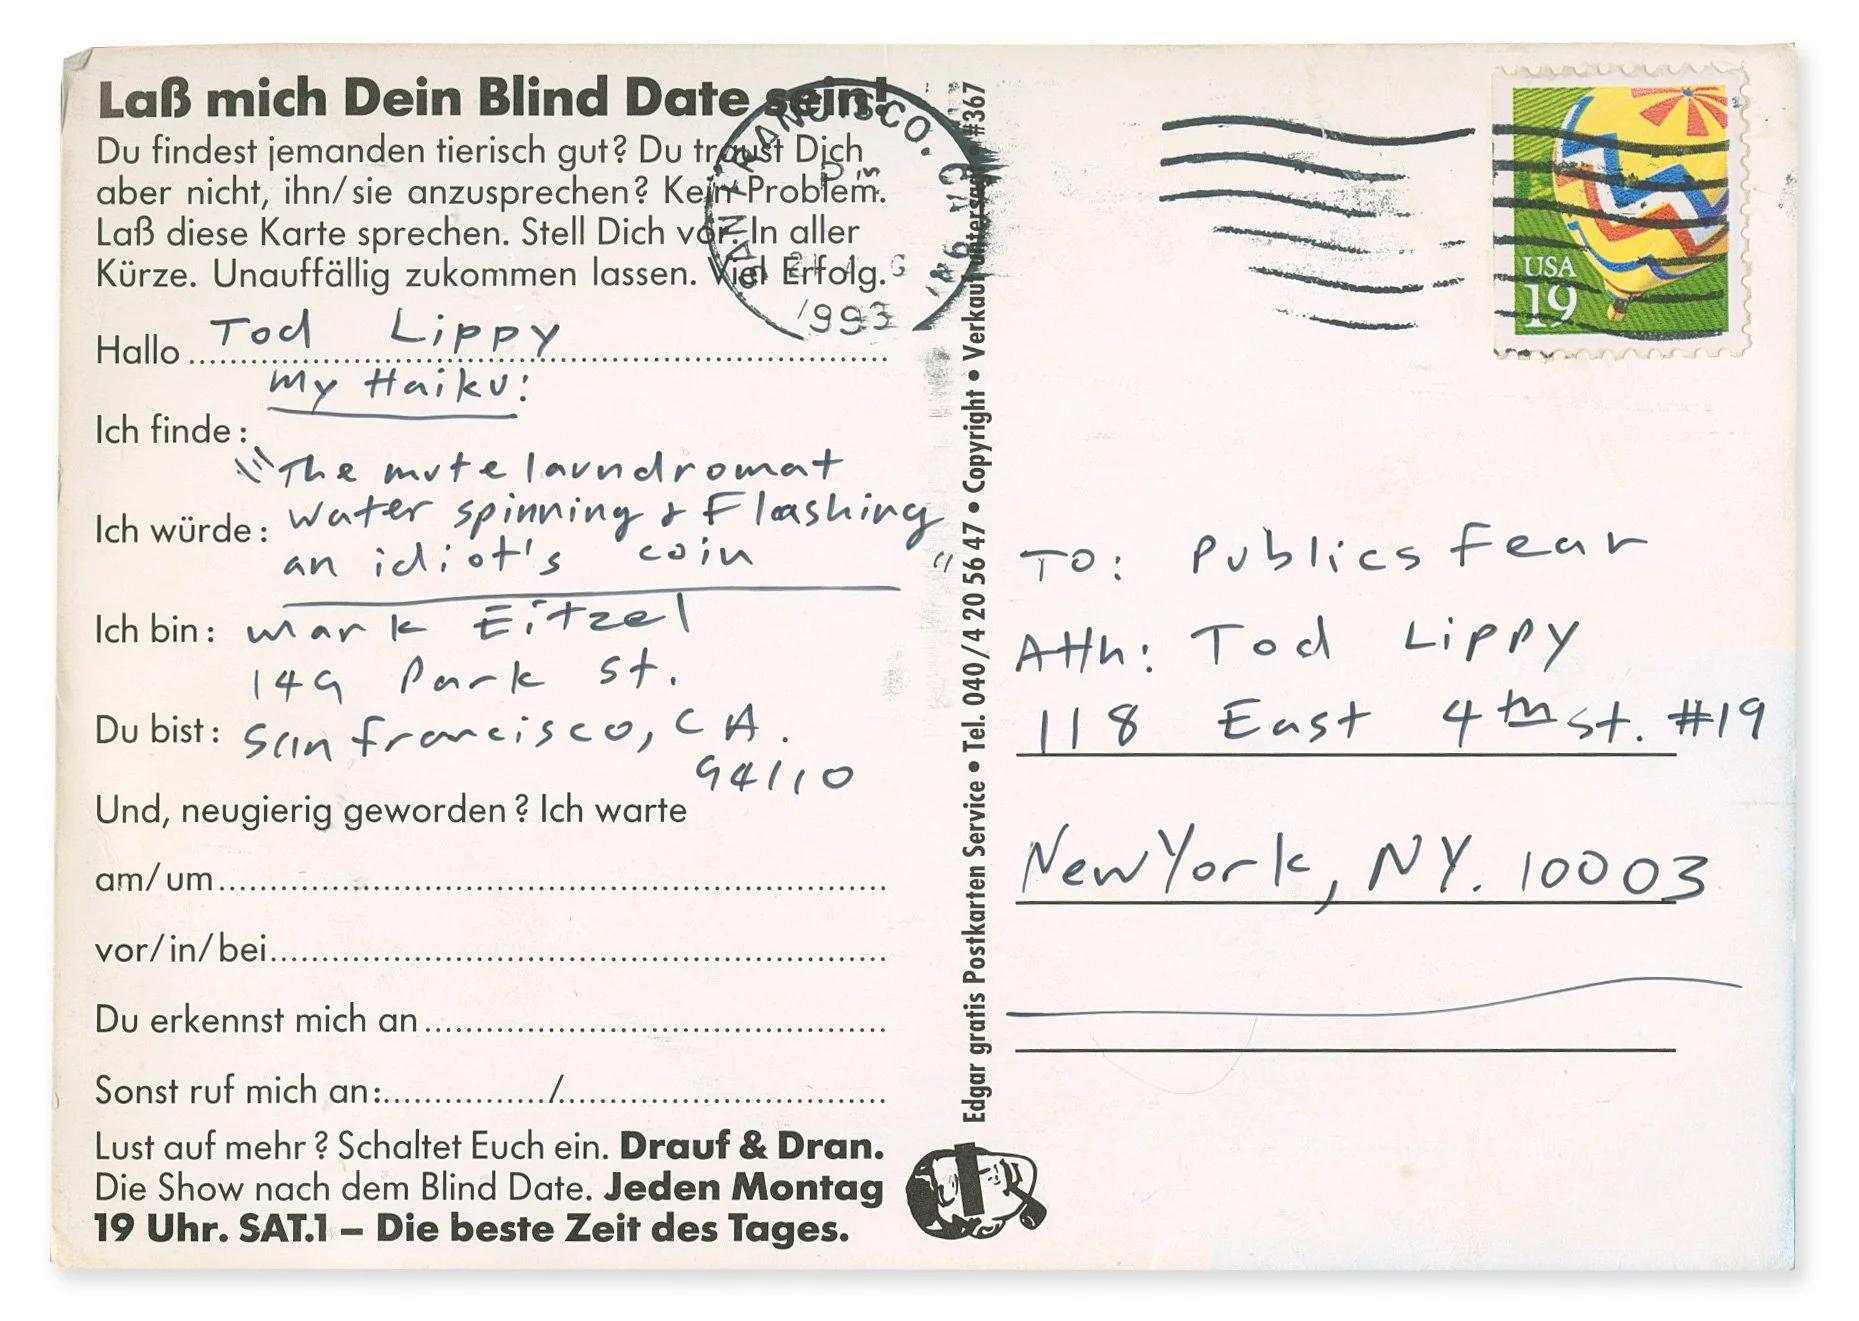 Laß mich Dein Blind Date sein!
Du findest jemanden tierisch gut? Du traust Dich
aber nicht, ihn/sie anzusprechen? Kein Problem.
Laß diese Karte sprechen. Stell Dich vor. In aller
Kürze. Unauffällig zukommen lassen. Viel Erfolg.
Hallo Tod Lippy
My Haiku:
Ich finde:
"The mute laundromat
Ich würde: water spinning & Flashing
an idiot's coin"
Ich bin: Mark Eitzel
149 Park St.
Du bist: San Francisco, CA.
94110
Und, neugierig geworden? Ich warte
am/um
vor/in/bei
Du erkennst mich an
Sonst ruf mich an: /
Lust auf mehr? Schaltet Euch ein. Drauf & Dran.
Die Show nach dem Blind Date. Jeden Montag
19 Uhr. SAT.1 – Die beste Zeit des Tages.
Edgar gratis Postkarten Service • Tel. 040/4 20 56 47 • Copyright • Verkauf untersagt • #367
SAN FRANCISCO, CA 941
PM
1993
USA
19
TO: Publicsfear
Attn: Tod Lippy
118 East 4th St. #19
New York, NY. 10003